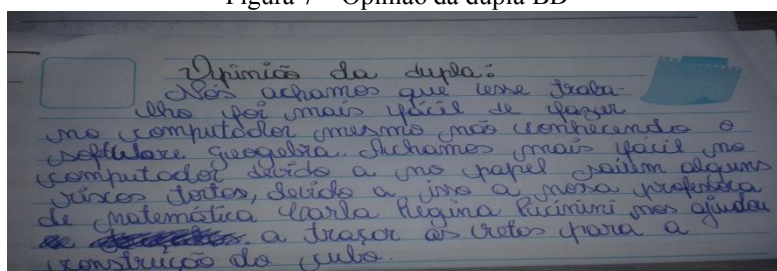 Figura 7 – Opinião da dupla BD
Opinião da dupla:
Nós achamos que esse traba-
lho foi mais fácil de fazer
no computador mesmo não conhecendo o
softwlare geogebra. Achamos mais fácil no
computador devido a no papel sairem alguns
riscos tortos, devido a isso a nossa professora
de matemática Carla Regina nos ajudou
a traçar as retas para a
construção do cubo.